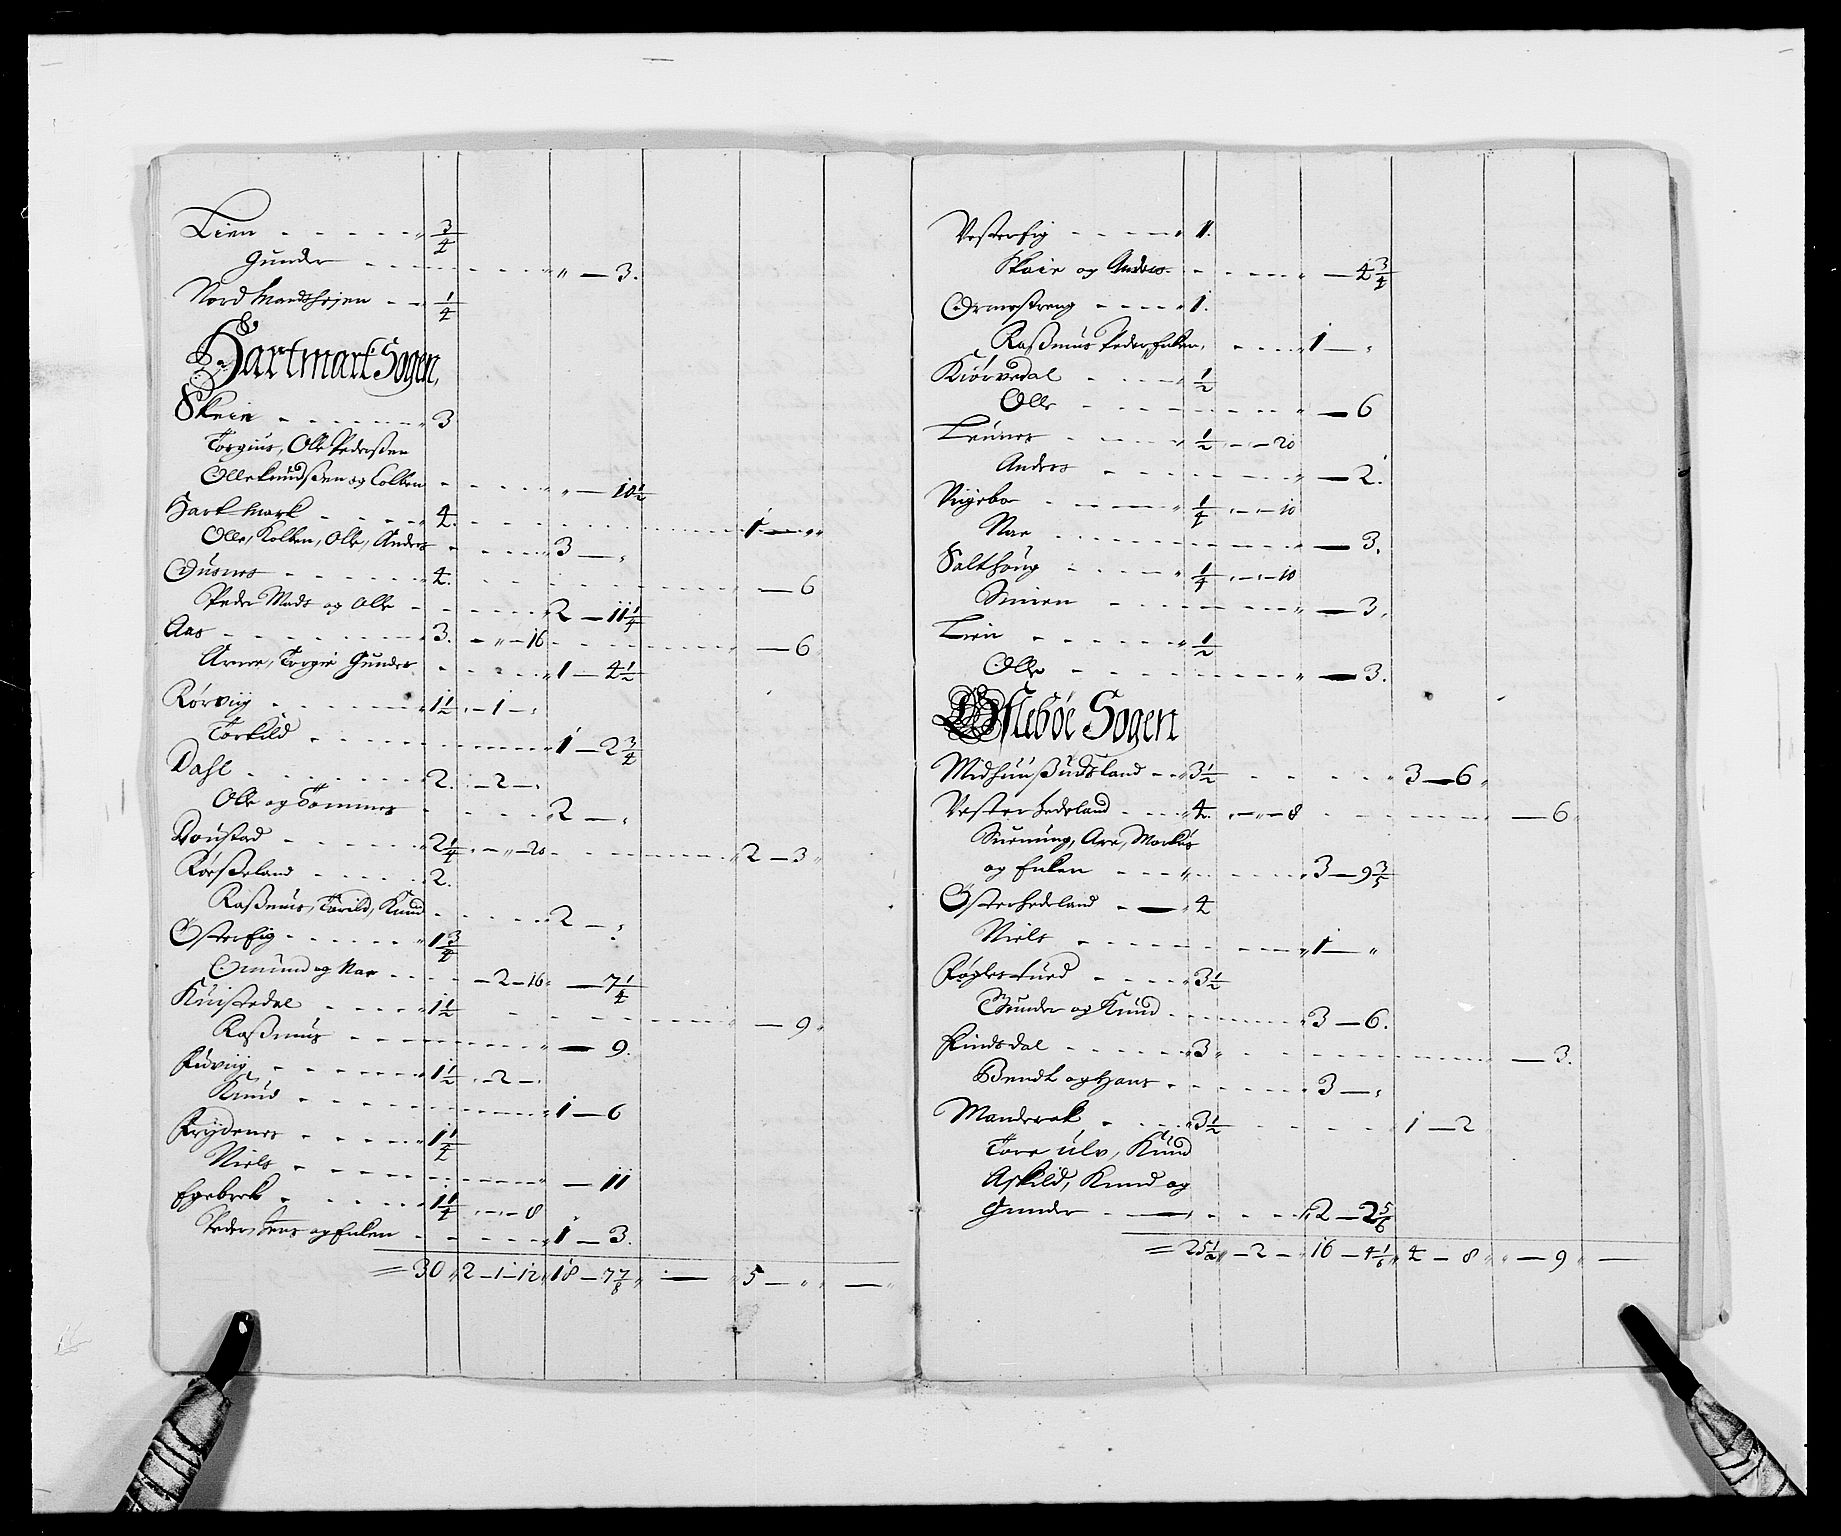 Lien - - - - - - „ 3/4
Gunder - - - - - - - - „ — 3.
Nord Mandshejen - - 1/4
Hartmark Sogen,
Skeie - - - - - - - 3
Torgius, Olle Pederssen
Olle Knudssen og Colben - - - - - „ „ — 10 1/2
Hartmark - - - - - 4. - - - - - - - - 1 — „
Olle, Kolben, Olle, Anders - - - - - 3 — „
Øusnes - - - - - - 4. - - - - - - - — 6
Peder Mads og Olle - - - - - - 2 — 11 1/4
Aas - - - - - - - 3. - „ — 16 - - - - - — 6
Arne, Torgie Gunder - - - - - „ 1 — 4 1/2
Rørviig - - - - - - 1 1/2 „ - 1 — „
Torkild - - - - - - - - - - - „ 1 — 2 3/4
Dahl - - - - - - - 2. - 2 — „
Olle og Tommes - - - - - - „ 2 — „
Doustad - - - - - - 2 1/4 „ — „ — 20 - - - - - „ 2 — 3 „
Røesseland - - - - - 2.
Rassmus, Tarild, Knud - - - - - „ 2 — „
Østerfig - - - - - - 1 3/4
Omund og Nae - - - - 2 — 16 „ — 7 1/4
Knistedal - - - - - 1 1/2 - - - - - - - - — 9 „
Rassmus - - - - - - - - - - „ — 9.
Fidviig - - - - - - 1 1/2 „ - 2 — „
Knud - - - - - - - - - - - „ 1 — 6
Frydenes - - - - - „ 1 1/4
Niels - - - - - - - - - - - „ — 11
Egebrek - - - - - - 1 1/4 „ - „ - 8
Peder, Jens og Enken - - - - - - „ 1 — 3.
= 30 „ 2 — 1 — 12 „ 18 — 7 7/8 „ — „ 5 — „ „ — „
Vesterfig - - - - - „ 1.
Skeie og Anders - - - - - - „ — 4 3/4
Ormestreng - - - - „ 1.
Rassmus Peder Enken, - - - - „ 1 — „
Kiørvedal - - - - - 1/2
Olle - - - - - - - - - - „ — 6
Leunes - - - - - „ 1/2 „ - „ — 20
Anders - - - - - - - - - - „ — 2.
Viigebo - - - - - „ 1/4 „ - „ — 10
Nae - - - - - - - - - - - - — 3.
Salthøug - - - - „ 1/4 „ - „ — 10
Simen - - - - - - - - - - „ — 3,
Lien - - - - - - „ 1/2
Olle - - - - - - - - - - - „ — 3.
Øslebøe Sogen
Midhuussudsland - - „ 3 1/2 - - - - - „ 3 — 6 „
Vester Hedeland - - - - „ 4. „ - „ — 8 - - - - - - - — 6 „
Suenning, Are, Markus
og Enken - - - - „ - - - - - „ 3 — 9 3/5
Øster Hedeland - — „ 4
Niels - - - - - - - - - - - „ 1 — „
Føglestued - - - - „ 3 1/2
Gunder og Knud - - - - - - - 3 — 6.
Findsdal - - - - - - „ 3 „ - - - - - - - - - — 3.
Bendt og Hans - - - - - - - 3 — „
Manderek - - - - „ 3 1/2 - - - - - - 1 — 2
Tore Ulv, Knud
Askild, Knud og
Gunder - — „ - - - - „ 2 — 2 5/6
= 25 1/2 „ - 2 — „ 16 — 4 1/6 „ 4 — 8 „ „ — 9 „ —